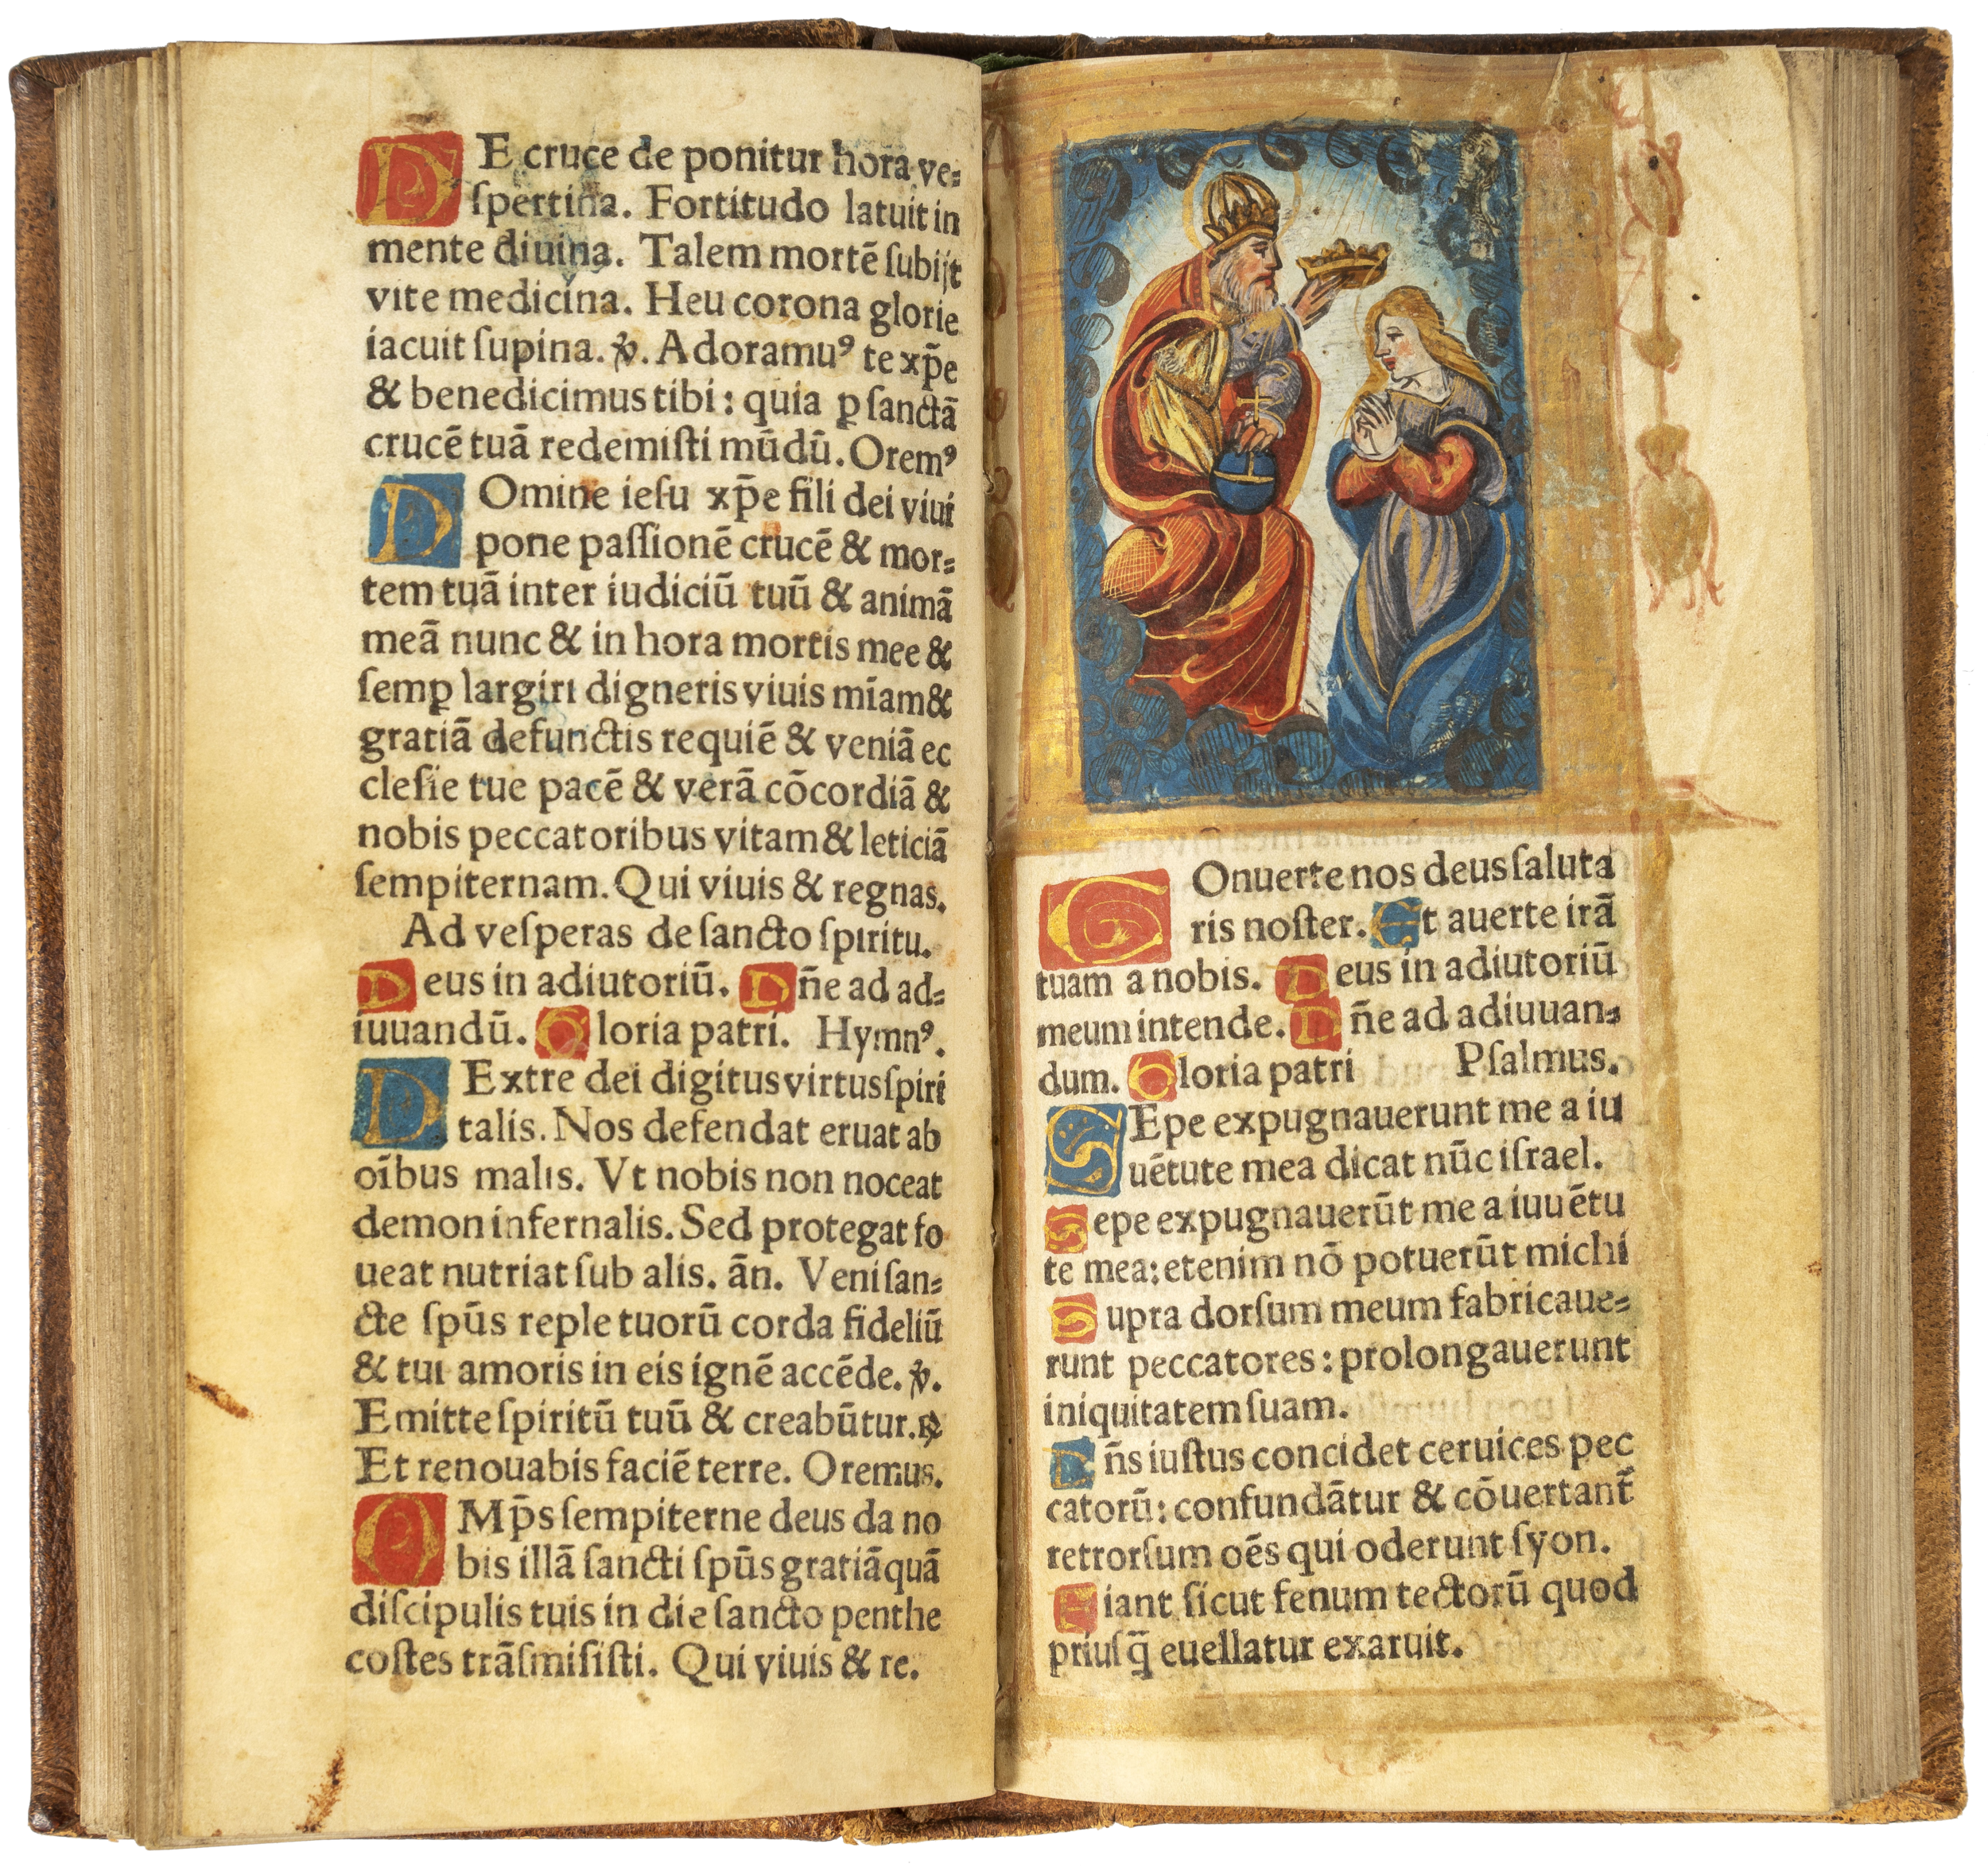 DE cruce de ponitur hora ve⸗
ſpertina. Fortitudo latuit in
mente diuina. Talem mortē ſubijt
vite medicina. Heu corona glorie
iacuit ſupina. ℣. Adoramuꝰ te xp̄e
& benedicimus tibi: quia ꝑ ſanctā
crucē tuā redemiſti mūdū. Oremꝰ
DOmine ieſu xp̄e fili dei viui
pone paſſionē crucē & mor⸗
tem tuā inter iudiciū tuū & animā
meā nunc & in hora mortis mee &
ſemꝑ largiri digneris viuis mīam &
gratiā defunctis requiē & veniā ec
cleſie tue pacē & verā cōcordiā &
nobis peccatoribus vitam & leticiā
ſempiternam. Qui viuis & regnas.
Ad veſperas de ſancto ſpiritu.
Deus in adiutoriū. Dn̄e ad ad⸗
iuuandū. Gloria patri. Hymnꝰ.
DExtre dei digitus virtus ſpiri
talis. Nos defendat eruat ab
oībus malis. Vt nobis non noceat
demon infernalis. Sed protegat fo
ueat nutriat ſub alis. ān. Veni ſan⸗
cte ſpūs reple tuorū corda fideliū
& tui amoris in eis ignē accēde. ℣.
Emitte ſpiritū tuū & creabūtur. ℟
Et renouabis faciē terre. Oremus.
OMp̄s ſempiterne deus da no
bis illā ſancti ſpūs gratiā quā
diſcipulis tuis in die ſancto penthe
coſtes trāſmiſiſti. Qui viuis & re.
COnuerte nos deus ſaluta
ris noſter. Et auerte irā
tuam a nobis. Deus in adiutoriū
meum intende. Dn̄e ad adiuuan⸗
dum. Gloria patri Pſalmus.
SEpe expugnauerunt me a iu
uētute mea dicat nūc iſrael.
Sepe expugnauerūt me a iuuētu
te mea: etenim nō potuerūt michi
Supra dorſum meum fabricaue⸗
runt peccatores: prolongauerunt
iniquitatem ſuam.
Dn̄s iuſtus concidet ceruices pec
catorū: confundātur & cōuertant᷑
retrorſum oēs qui oderunt ſyon.
Fiant ſicut fenum tectorū quod
priuſq̄ euellatur exaruit.